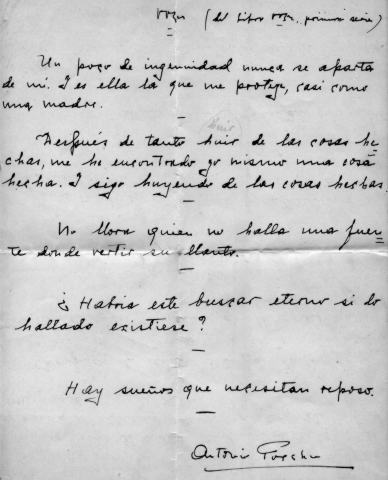 Voces (del libro Voces, primera serie)
Un poço de ingenuidad nunca se aparta
de mí. I es ella la que me protege, casi como
una madre.
Después de tanto huir de las cosas he-
chas, me he encontrado yo mismo una cosa
hecha. I sigo huyendo de las cosas hechas.
No llora quien no halla una fuen-
te donde vertir su llanto.
¿Habría este buscar eterno si lo
hallado existiese?
Hay sueños que necesitan reposo.
Antonio Porchia